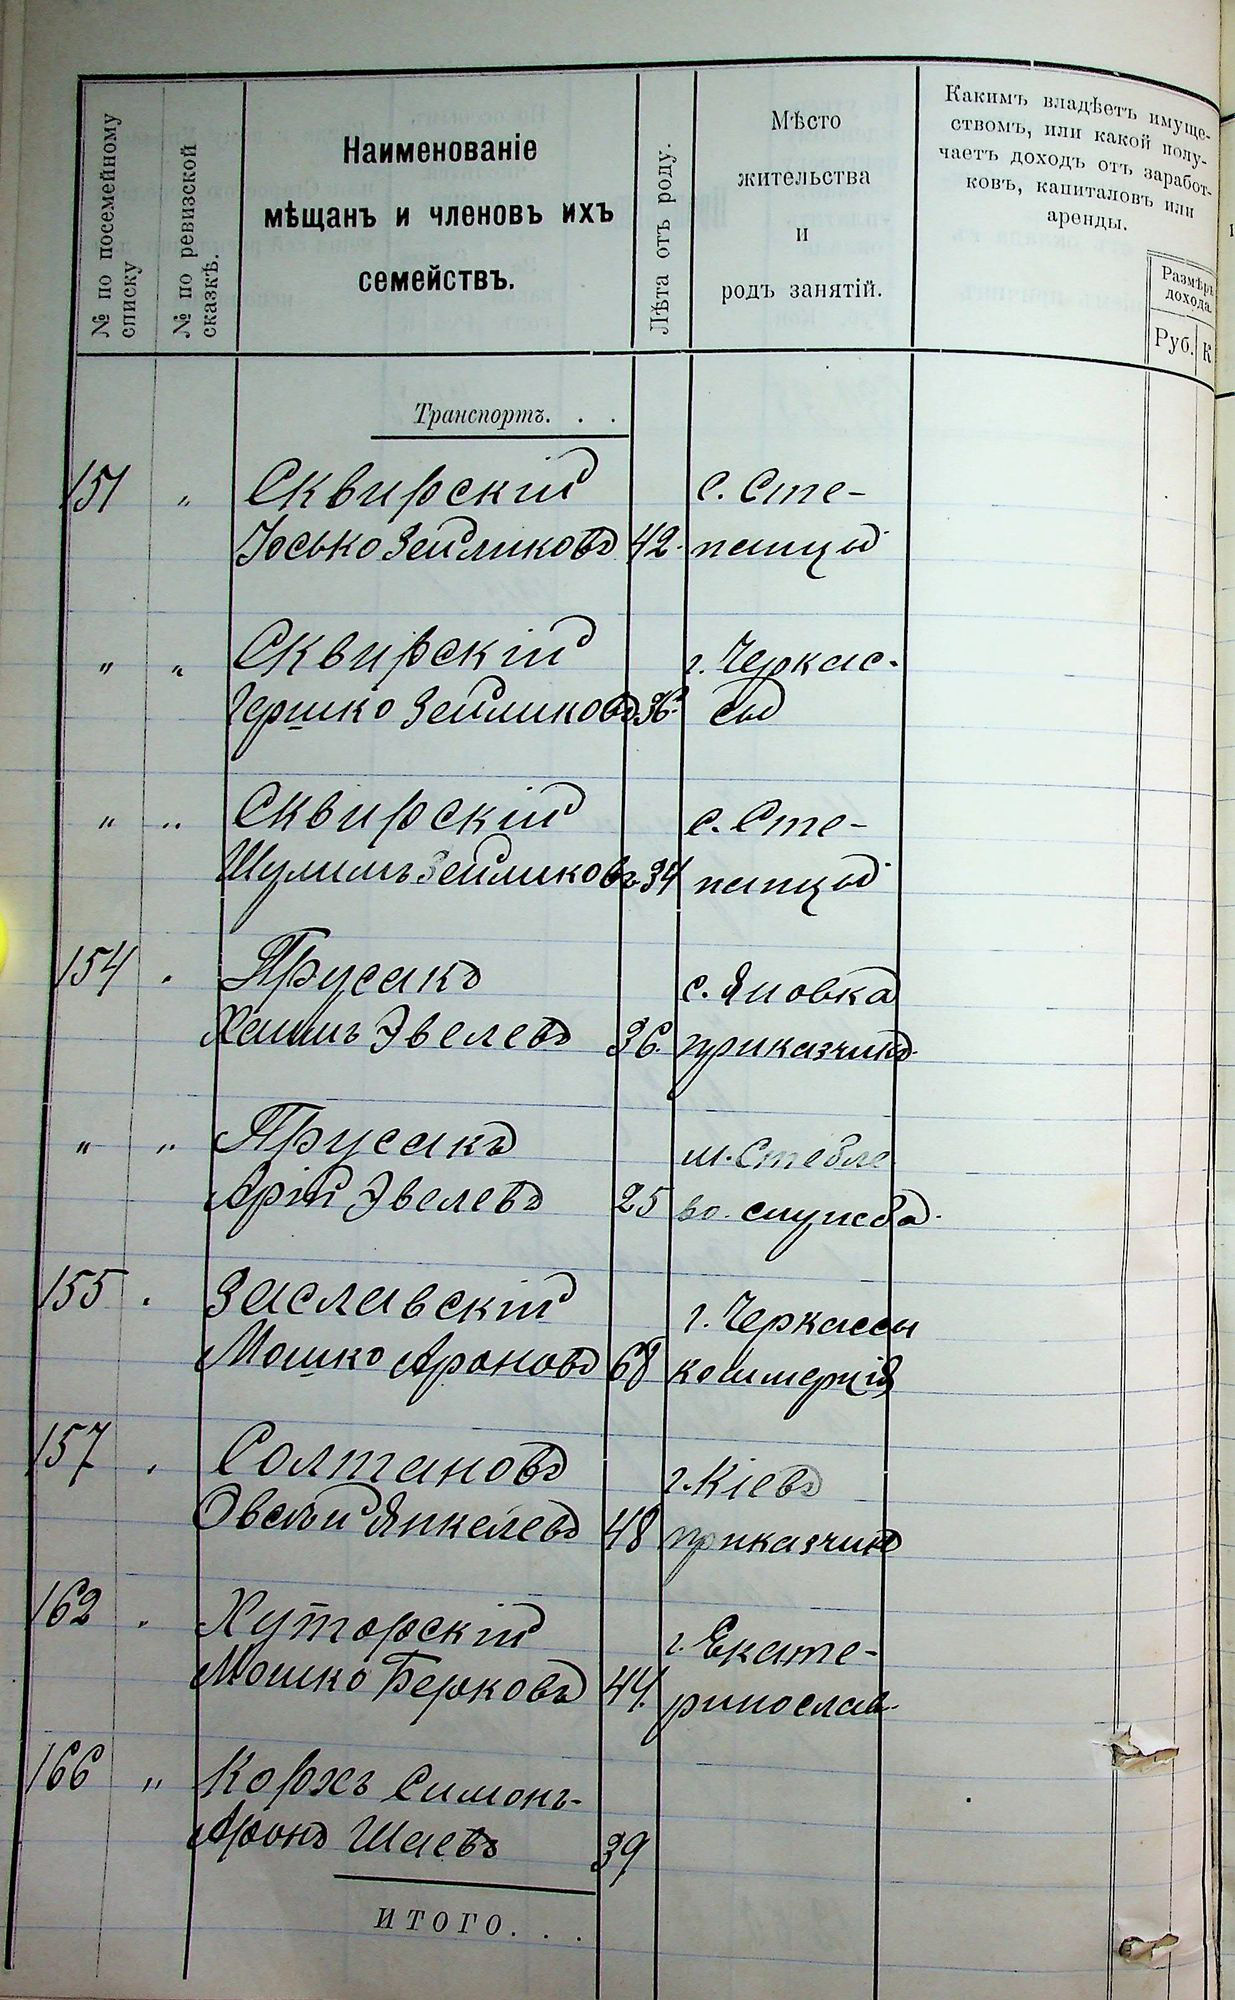 № по посемейному
списку
№ по ревизской
сказкѣ.
Наименованіе
мѣщанъ и членовъ ихъ
семействъ.
Лѣта отъ роду.
Мѣсто
жительства
и
родъ занятій.
Какимъ владѣетъ имуще-
ствомъ, или какой полу-
чаетъ доходъ отъ заработ-
ковъ, капиталовъ или
аренды.
Размѣръ
дохода.
Руб. К
Транспортъ. . .
151 „ Сквирскій с. Сте-
Юсько Зейликовъ 42. панцы
„ „ Сквирскій г. Черкас-
Гершко Зейликовъ 36. сы
„ „ Сквирскій с. Сте-
Шулимъ Зейликовъ 34 панцы
154 „ Прусакъ с. Яновка
Хаимъ Эвелевъ 36. приказчикъ.
„ „ Прусакъ м. Стебле
Арій Эвелевъ 25 во. служба.
155 „ Заславскій г. Черкассы
Мошко Ароновъ 68 коммерція
157 „ Солтановъ г. Кіевъ
Овсѣй Янкелевъ 48 приказчикъ
162 „ Хуторскій г. Екате-
Мошко Берковъ 44. ринослав.
166 „ Коржъ Симонъ-
Аронъ Шаевъ 39
ИТОГО. . .